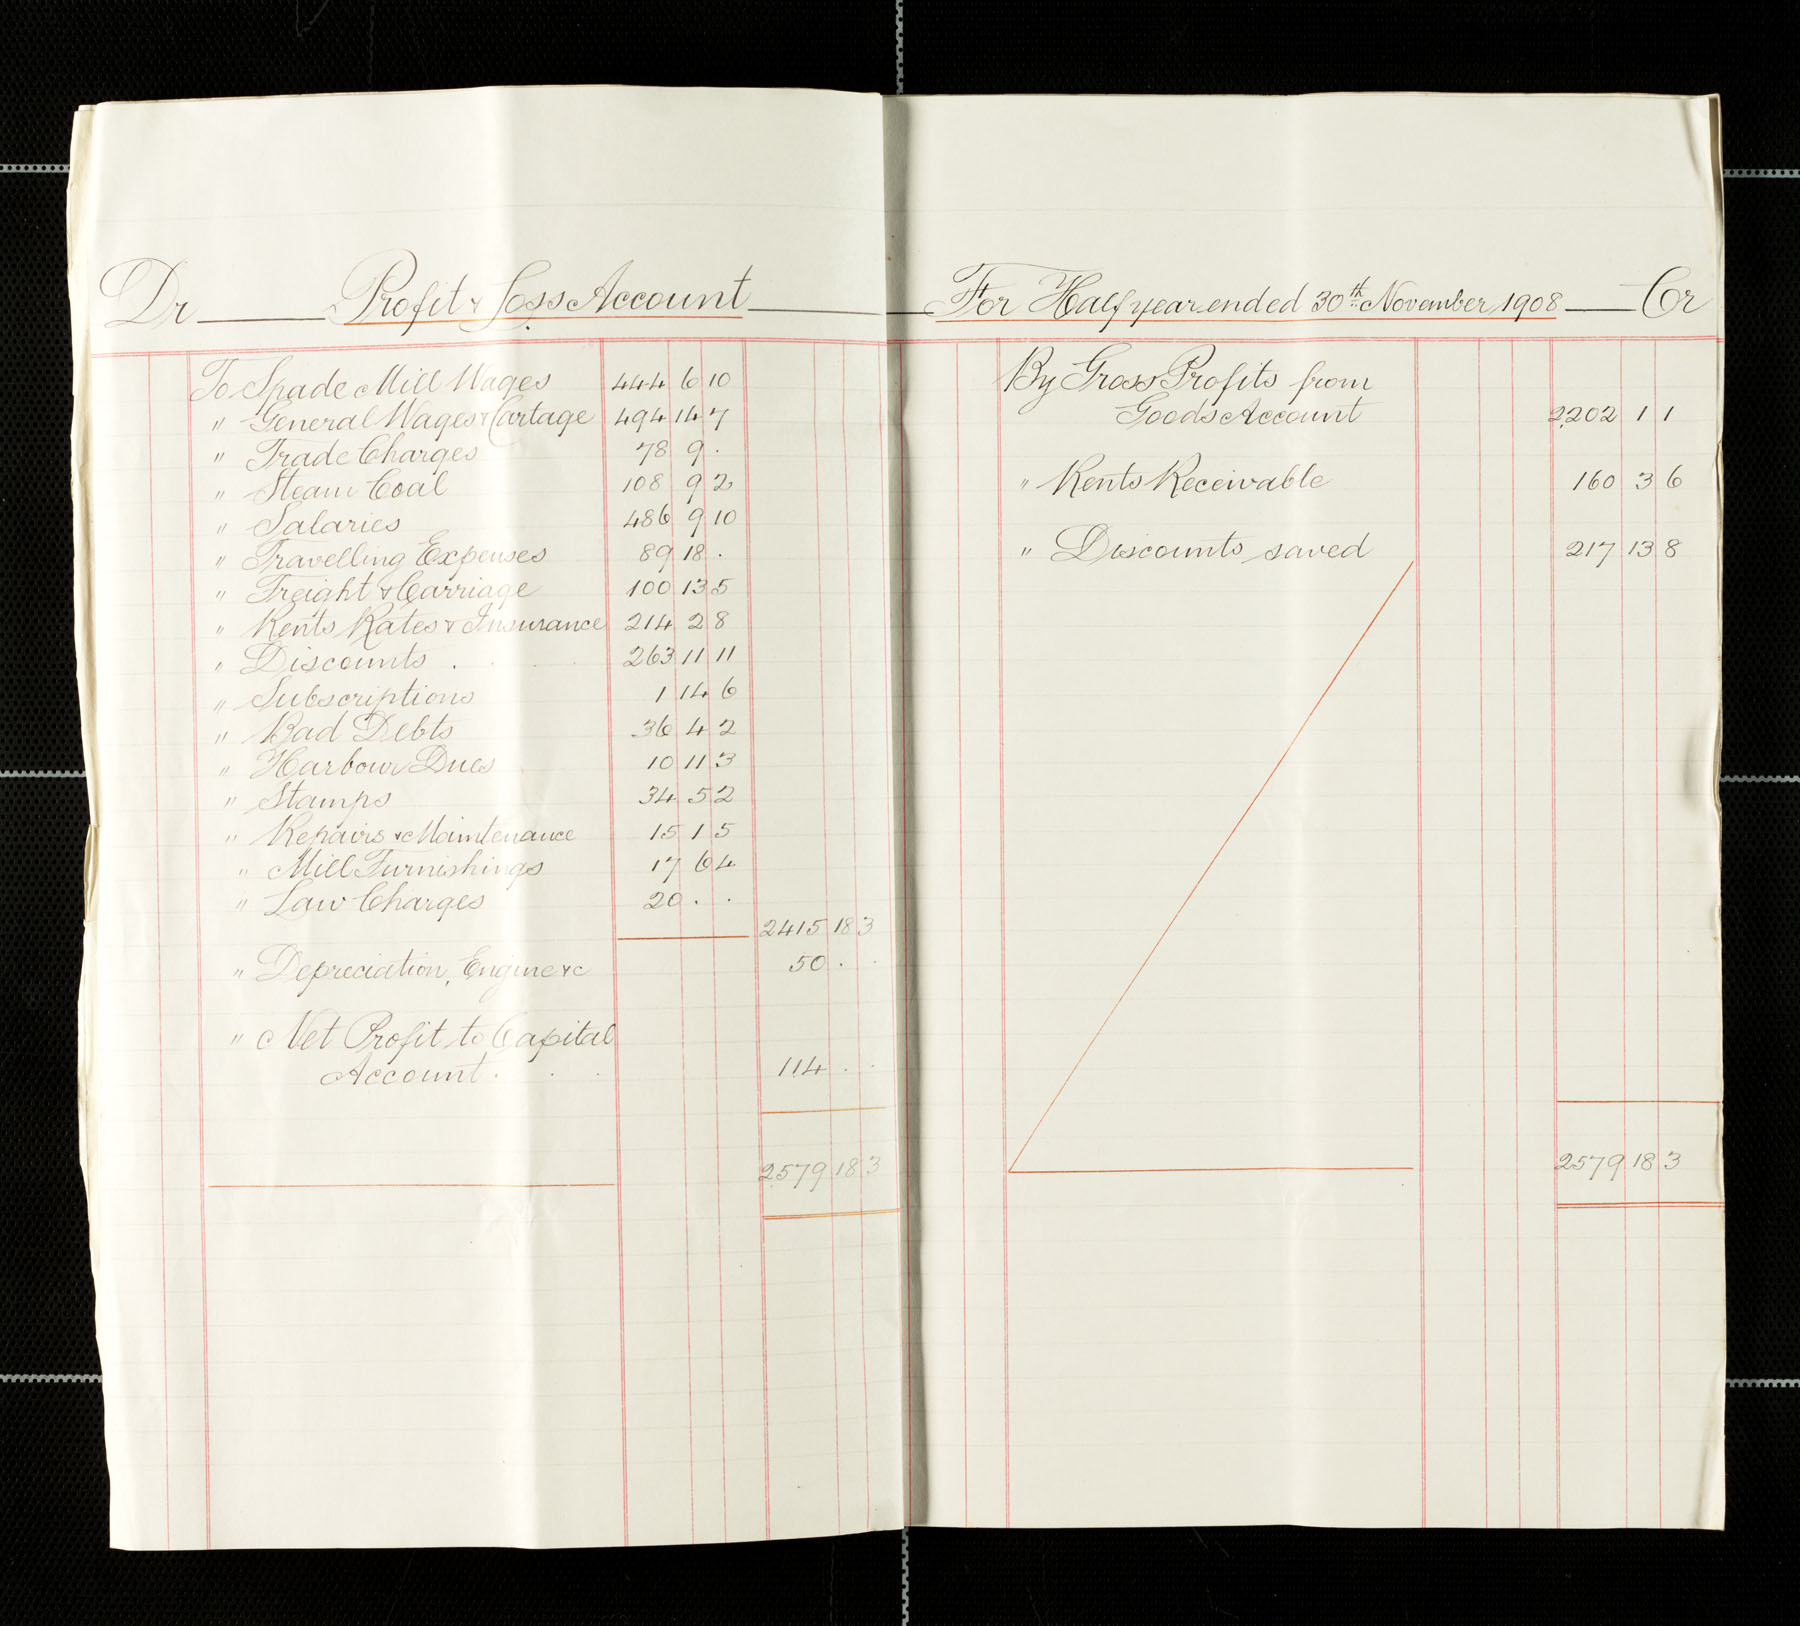 Dr Profit & Loss Account
To Spade Mill Wages 444 6 10
" General Wages & Cartage 494 14 7
" Trade Charges 78 9 .
" Steam Coal 108 9 2
" Salaries 486 9 10
" Travelling Expenses 89 18 .
" Freight & Carriage 100 13 5
" Rents Rates & Insurance 214 2 8
" Discounts . 263 11 11
" Subscriptions 1 14 6
" Bad Debts 36 4 2
" Harbour Dues 10 11 3
" Stamps 34 5 2
" Repairs & Maintenance 15 1 5
" Mill Furnishings 17 6 4
" Law Charges 20 . .
2415 18 3
" Depreciation, Engine &c 50 . .
" Net Profit to Capital
Account . . . 114 . .
2579 18 3
For Half year ended 30th November 1908 Cr
By Gross Profits from
Goods Account 2202 1 1
" Rents Receivable 160 3 6
" Discounts saved 217 13 8
2579 18 3